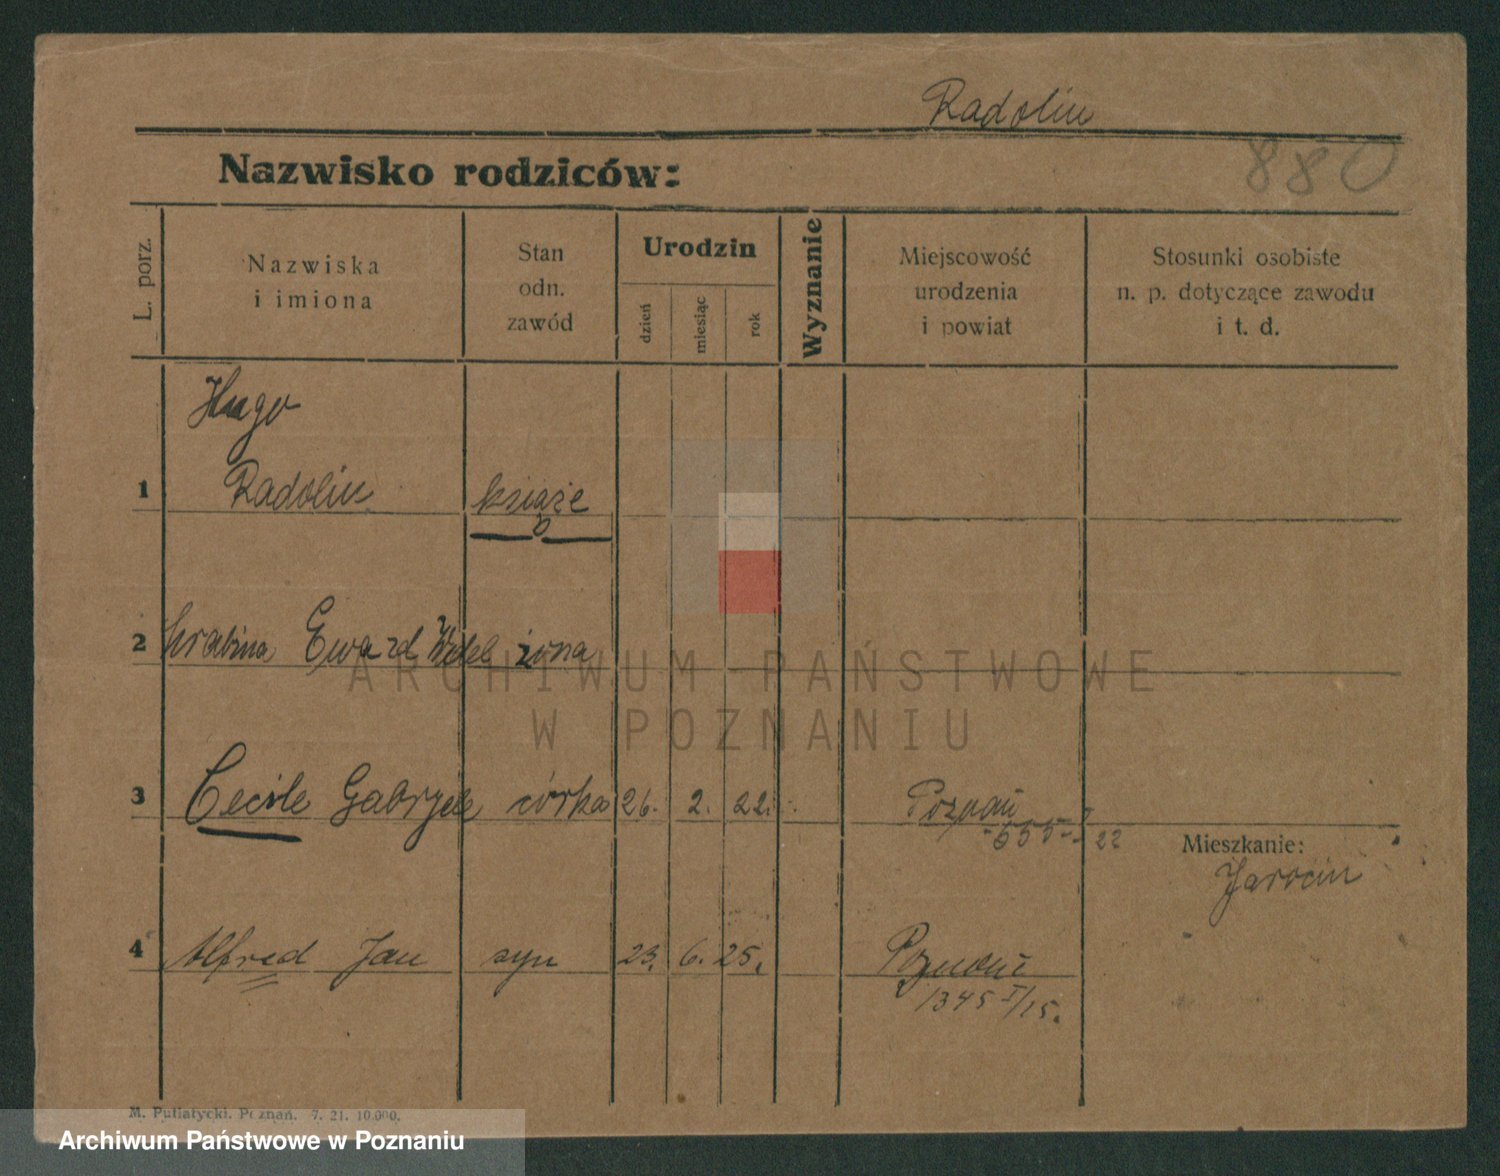 Radolin
Nazwisko rodziców:
880
L. porz.
Nazwiska
i imiona
Stan
odn.
zawód
Urodzin
dzień
miesiąc
rok
Wyznanie
Miejscowość
urodzenia
i powiat
Stosunki osobiste
n. p. dotyczące zawodu
i t. d.
Hugo
1 Radolin książe
2 hrabina Ewa żona
3 Cecile Gabryele córka 26. 2. 22. Poznań
655 I 22
Mieszkanie:
Jarocin
4 Alfred Jan syn 23. 6. 25. Poznań
1345 I/25.
ARCHIWUM PAŃSTWOWE
W POZNANIU
M. Putiatycki. Poznań. 7. 21. 10.000.
Archiwum Państwowe w Poznaniu